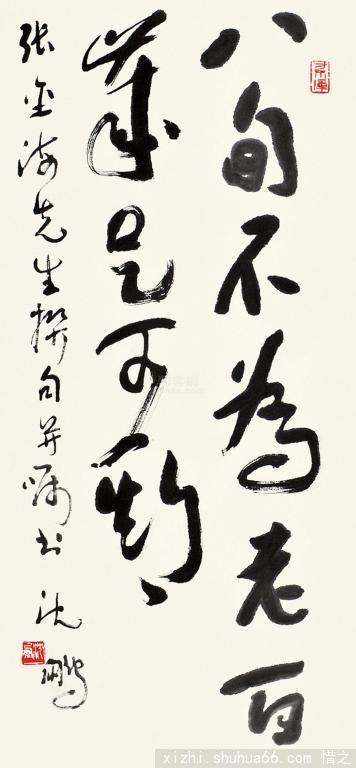 八旬不為老百
歲足可期
张金海先生撰句并嘱书 沈鵬
xizhi.shuhua66.com 惜之